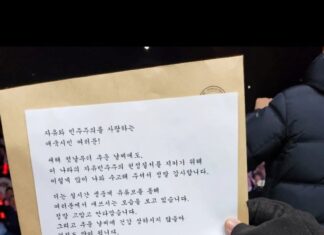 자유와 민주주의를 사랑하는
애국시민 여러분!
새해 첫날부터 추운 날씨에도,
이 나라의 자유민주주의 헌정질서를 지키기 위해
이렇게 많이 나와 수고해 주셔서 정말 감사합니다.
저는 실시간 생중계 유튜브를 통해
여러분께서 애쓰시는 모습을 보고 있습니다.
정말 고맙고 안타깝습니다.
그리고 추운 날씨에 건강 상하시지 않을까
걱정도 많이 됩니다.